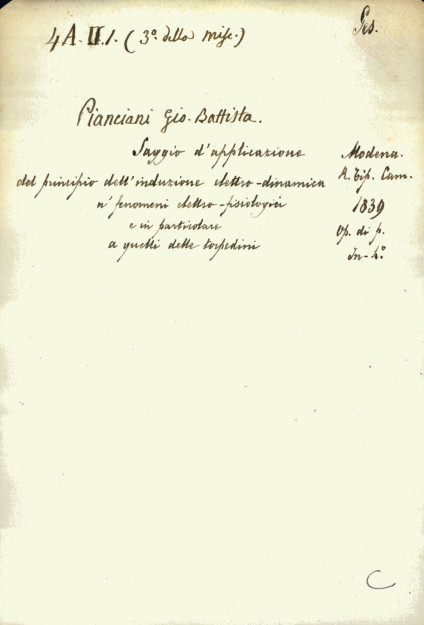 Ges.
4A.II.1. (3º della misc.)
Pianciani Gio. Battista.
Saggio d'applicazione
del principio dell'induzione elettro-dinamica
a' fenomeni elettro-fisiologici
e in particolare
a quelli delle torpedini
Modena.
R. Tip. Cam.
1839
Op. di p.
In-4.º
C